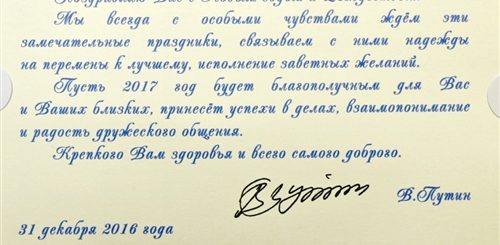 Мы всегда с особыми чувствами ждём эти
замечательные праздники, связываем с ними надежды
на перемены к лучшему, исполнение заветных желаний.
Пусть 2017 год будет благополучным для Вас
и Ваших близких, принесёт успехи в делах, взаимопонимание
и радость дружеского общения.
Крепкого Вам здоровья и всего самого доброго.
В.Путин
31 декабря 2016 года